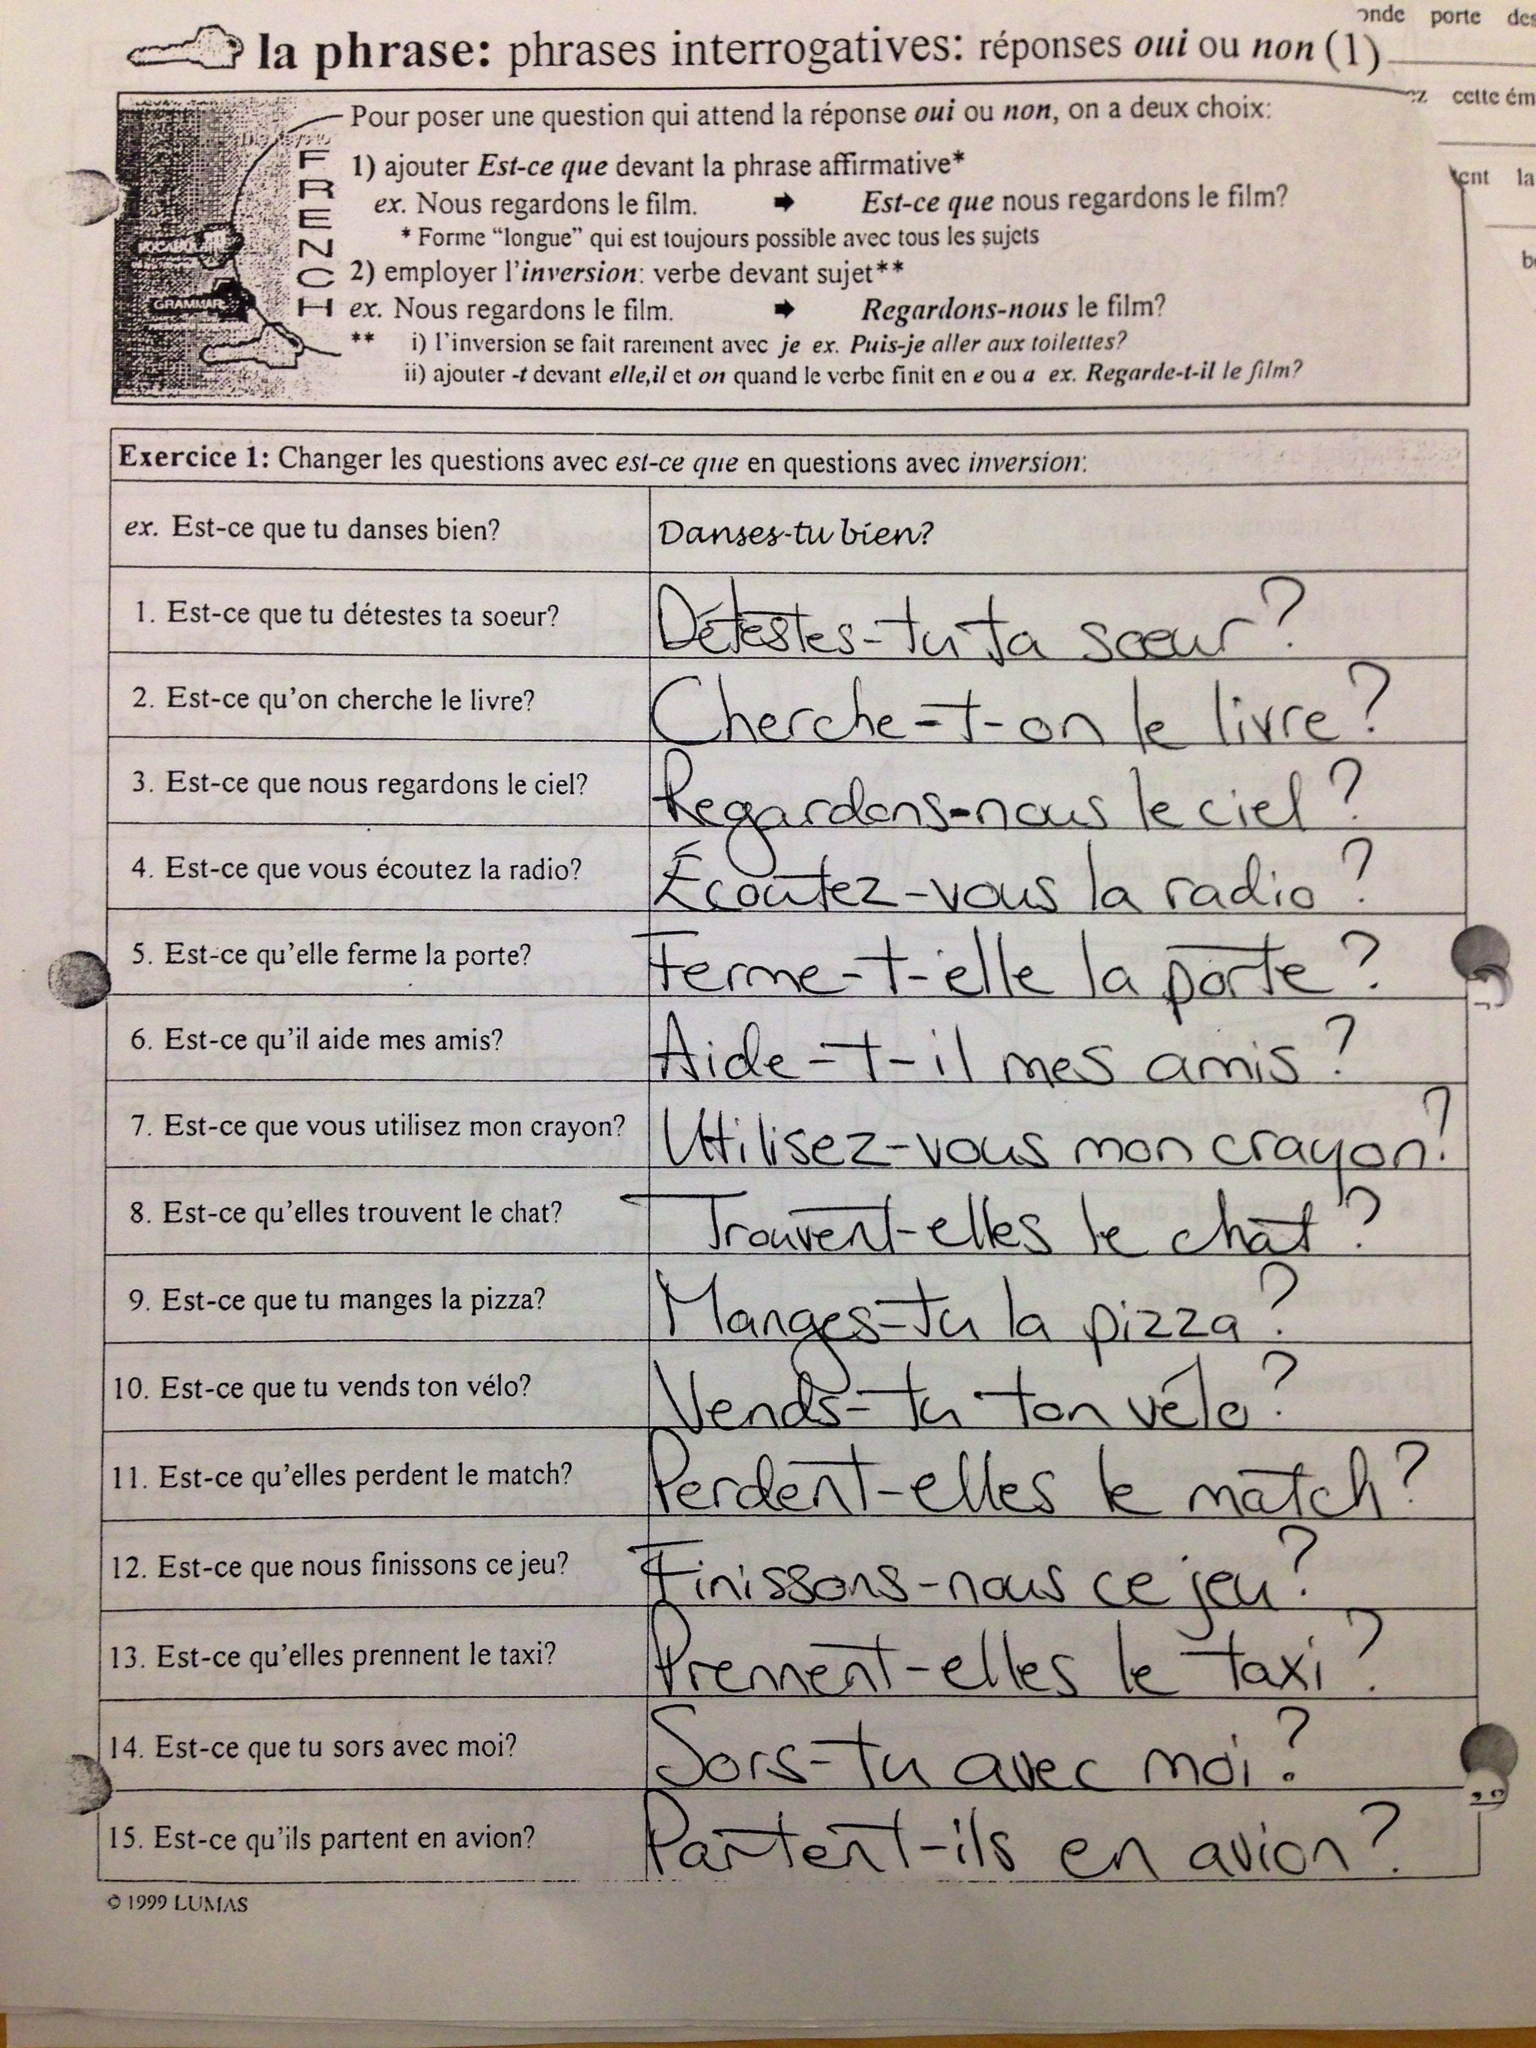 onde porte des
la phrase: phrases interrogatives: réponses oui ou non (1)
ez cette ém
Pour poser une question qui attend la réponse oui ou non, on a deux choix:
FRENCH
1) ajouter Est-ce que devant la phrase affirmative*
tent la
ex. Nous regardons le film. ➡ Est-ce que nous regardons le film?
* Forme "longue" qui est toujours possible avec tous les sujets
VOCABU
2) employer l'inversion: verbe devant sujet**
GRAMMAR
ex. Nous regardons le film. ➡ Regardons-nous le film?
** i) l'inversion se fait rarement avec je ex. Puis-je aller aux toilettes?
ii) ajouter -t devant elle,il et on quand le verbe finit en e ou a ex. Regarde-t-il le film?
Exercice 1: Changer les questions avec est-ce que en questions avec inversion:
ex. Est-ce que tu danses bien? Danses-tu bien?
1. Est-ce que tu détestes ta soeur? Détestes-tu ta sœur?
2. Est-ce qu'on cherche le livre? Cherche-t-on le livre?
3. Est-ce que nous regardons le ciel? Regardons-nous le ciel?
4. Est-ce que vous écoutez la radio? Écoutez-vous la radio?
5. Est-ce qu'elle ferme la porte? Ferme-t-elle la porte?
6. Est-ce qu'il aide mes amis? Aide-t-il mes amis?
7. Est-ce que vous utilisez mon crayon? Utilisez-vous mon crayon?
8. Est-ce qu'elles trouvent le chat? Trouvent-elles le chat?
9. Est-ce que tu manges la pizza? Manges-tu la pizza?
10. Est-ce que tu vends ton vélo? Vends-tu ton vélo?
11. Est-ce qu'elles perdent le match? Perdent-elles le match?
12. Est-ce que nous finissons ce jeu? Finissons-nous ce jeu?
13. Est-ce qu'elles prennent le taxi? Prennent-elles le taxi?
14. Est-ce que tu sors avec moi? Sors-tu avec moi?
15. Est-ce qu'ils partent en avion? Partent-ils en avion?
© 1999 LUMAS